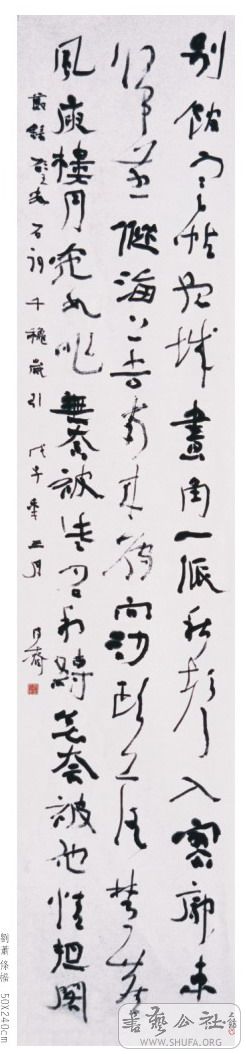 别館寒砧孤城畫角一派秋聲入寥廓東
歸燕從海上去南來雁向沙頭落楚臺
風庾樓月宛如昨無奈被些名利縛無奈被他情担閣
安石詞千秋歲引 戊子年三月
劉蕭條幅 50X240cm
書藝公社
WWW.SHUFA.ORG